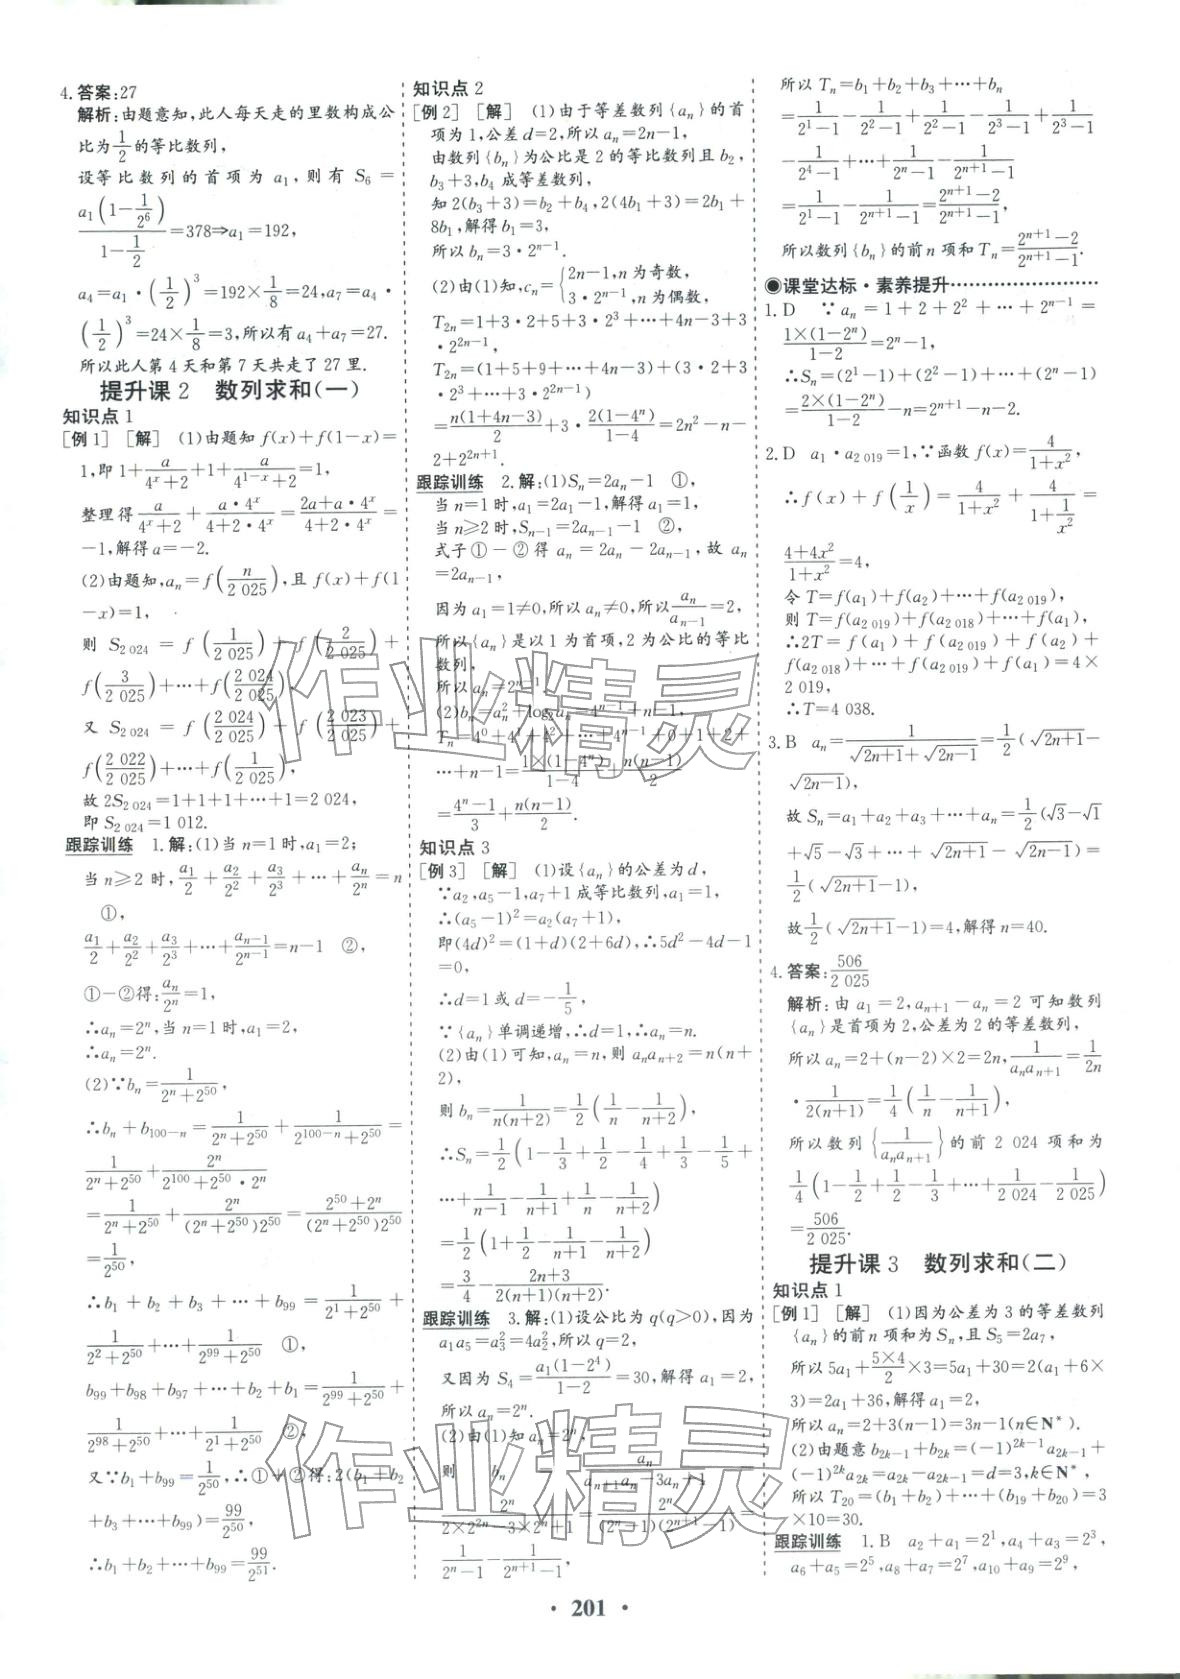 4. 答案:27
解析:由题意知,此人每天走的里数构成公
比为1/2的等比数列,
设等比数列的首项为 a₁,则有 S₆=
a₁(1-1/2⁶)/(1-1/2)=378⇒a₁=192,
a₄=a₁·(1/2)³=192×1/8=24,a₇=a₄·
(1/2)³=24×1/8=3,所以有 a₄+a₇=27.
所以此人第 4 天和第 7 天共走了 27 里.
提升课 2 数列求和(一)
知识点 1
[例 1] [解] (1)由题知 f(x)+f(1-x)=
1,即 1+a/(4ˣ+2)+1+a/(4¹⁻ˣ+2)=1,
整理得 a/(4ˣ+2)+(a·4ˣ)/(4+2·4ˣ)=(2a+a·4ˣ)/(4+2·4ˣ)=
-1,解得 a=-2.
(2)由题知,aₙ=f(n/2 025),且 f(x)+f(1
-x)=1,
则 S₂ ₀₂₄ = f(1/2 025)+f(2/2 025)+
f(3/2 025)+…+f(2 024/2 025)
又 S₂ ₀₂₄ = f(2 024/2 025)+f(2 023/2 025)+
f(2 022/2 025)+…+f(1/2 025),
故 2S₂ ₀₂₄=1+1+1+…+1=2 024,
即 S₂ ₀₂₄=1 012.
跟踪训练 1. 解:(1)当 n=1 时,a₁=2;
当 n≥2 时,a₁/2+a₂/2²+a₃/2³+…+aₙ/2ⁿ=n
①,
a₁/2+a₂/2²+a₃/2³+…+aₙ₋₁/2ⁿ⁻¹=n-1 ②,
①-②得:aₙ/2ⁿ=1,
∴aₙ=2ⁿ,当 n=1 时,a₁=2,
∴aₙ=2ⁿ.
(2)∵bₙ=1/(2ⁿ+2⁵⁰),
∴bₙ+b₁₀₀₋ₙ=1/(2ⁿ+2⁵⁰)+1/(2¹⁰⁰⁻ⁿ+2⁵⁰)=
1/(2ⁿ+2⁵⁰)+2ⁿ/(2¹⁰⁰+2⁵⁰·2ⁿ)
=1/(2ⁿ+2⁵⁰)+2ⁿ/((2ⁿ+2⁵⁰)2⁵⁰)=(2⁵⁰+2ⁿ)/((2ⁿ+2⁵⁰)2⁵⁰)
=1/2⁵⁰,
∴b₁+b₂+b₃+…+b₉₉=1/(2¹+2⁵⁰)+
1/(2²+2⁵⁰)+…+1/(2⁹⁹+2⁵⁰) ①,
b₉₉+b₉₈+b₉₇+…+b₂+b₁=1/(2⁹⁹+2⁵⁰)+
1/(2⁹⁸+2⁵⁰)+…+1/(2¹+2⁵⁰) ②,
又∵b₁+b₉₉=1/2⁵⁰,∴①+②得:2(b₁+b₂
+b₃+…+b₉₉)=99/2⁵⁰,
∴b₁+b₂+…+b₉₉=99/2⁵¹.
知识点 2
[例 2] [解] (1)由于等差数列{aₙ}的首
项为 1,公差 d=2,所以 aₙ=2n-1,
由数列{bₙ}为公比是 2 的等比数列且 b₂,
b₃+3,b₄ 成等差数列,
知 2(b₃+3)=b₂+b₄,2(4b₁+3)=2b₁+
8b₁,解得 b₁=3,
所以 bₙ=3·2ⁿ⁻¹.
(2)由(1)知,cₙ={2n-1,n 为奇数,
3·2ⁿ⁻¹,n 为偶数,
T₂ₙ=1+3·2+5+3·2³+…+4n-3+3
·2²ⁿ⁻¹,
T₂ₙ=(1+5+9+…+4n-3)+(3·2+3
·2³+…+3·2²ⁿ⁻¹)
=n(1+4n-3)/2+3·2(1-4ⁿ)/(1-4)=2n²-n-
2+2²ⁿ⁺¹.
跟踪训练 2. 解:(1)Sₙ=2aₙ-1 ①,
当 n=1 时,a₁=2a₁-1,解得 a₁=1,
当 n≥2 时,Sₙ₋₁=2aₙ₋₁-1 ②,
式子①-②得 aₙ=2aₙ-2aₙ₋₁,故 aₙ
=2aₙ₋₁,
因为 a₁=1≠0,所以 aₙ≠0,所以aₙ/aₙ₋₁=2,
所以{aₙ}是以 1 为首项,2 为公比的等比
数列,
所以 aₙ=2ⁿ⁻¹
(2)bₙ=aₙ²+log₂aₙ=4ⁿ⁻¹+n-1,
Tₙ=4⁰+4¹+4²+…+4ⁿ⁻¹+0+1+2+
…+n-1=1×(1-4ⁿ)/(1-4)+n(n-1)/2
=(4ⁿ-1)/3+n(n-1)/2.
知识点 3
[例 3] [解] (1)设{aₙ}的公差为 d,
∵a₂,a₅-1,a₇+1 成等比数列,a₁=1,
∴(a₅-1)²=a₂(a₇+1),
即(4d)²=(1+d)(2+6d),∴5d²-4d-1
=0,
∴d=1 或 d=-1/5,
∵{aₙ}单调递增,∴d=1,∴aₙ=n.
(2)由(1)可知,aₙ=n,则 aₙaₙ₊₂=n(n+
2),
则 bₙ=1/(n(n+2))=1/2(1/n-1/(n+2)),
∴Sₙ=1/2(1-1/3+1/2-1/4+1/3-1/5+
…+1/(n-1)-1/(n+1)+1/n-1/(n+2))
=1/2(1+1/2-1/(n+1)-1/(n+2))
=3/4-(2n+3)/(2(n+1)(n+2)).
跟踪训练 3. 解:(1)设公比为 q(q>0),因为
a₁a₅=a₃²=4a₂²,所以 q=2,
又因为 S₄=a₁(1-2⁴)/(1-2)=30,解得 a₁=2,
所以 aₙ=2ⁿ.
(2)由(1)知 aₙ=2ⁿ,
则 bₙ=aₙ/(aₙ₊₁aₙ-3aₙ+1)=
2ⁿ/(2×2²ⁿ-3×2ⁿ+1)=2ⁿ/((2ⁿ-1)(2ⁿ⁺¹-1))=
1/(2ⁿ-1)-1/(2ⁿ⁺¹-1),
所以 Tₙ=b₁+b₂+b₃+…+bₙ
=1/(2¹-1)-1/(2²-1)+1/(2²-1)-1/(2³-1)+1/(2³-1)
-1/(2⁴-1)+…+1/(2ⁿ-1)-1/(2ⁿ⁺¹-1)
=1/(2¹-1)-1/(2ⁿ⁺¹-1)=(2ⁿ⁺¹-2)/(2ⁿ⁺¹-1),
所以数列{bₙ}的前 n 项和 Tₙ=(2ⁿ⁺¹-2)/(2ⁿ⁺¹-1).
◉课堂达标·素养提升
1. D ∵aₙ=1+2+2²+…+2ⁿ⁻¹=
1×(1-2ⁿ)/(1-2)=2ⁿ-1,
∴Sₙ=(2¹-1)+(2²-1)+…+(2ⁿ-1)
=2×(1-2ⁿ)/(1-2)-n=2ⁿ⁺¹-n-2.
2. D a₁·a₂ ₀₁₉=1,∵函数 f(x)=4/(1+x²),
∴f(x)+f(1/x)=4/(1+x²)+4/(1+1/x²)=
(4+4x²)/(1+x²)=4,
令 T=f(a₁)+f(a₂)+…+f(a₂ ₀₁₉),
则 T=f(a₂ ₀₁₉)+f(a₂ ₀₁₈)+…+f(a₁),
∴2T=f(a₁)+f(a₂ ₀₁₉)+f(a₂)+
f(a₂ ₀₁₈)+…+f(a₂ ₀₁₉)+f(a₁)=4×
2 019,
∴T=4 038.
3. B aₙ=1/(√(2n+1)+√(2n-1))=1/2(√(2n+1)-
√(2n-1)),
故 Sₙ=a₁+a₂+a₃+…+aₙ=1/2(√3-√1
+√5-√3+…+√(2n+1)-√(2n-1))=
1/2(√(2n+1)-1),
故1/2(√(2n+1)-1)=4,解得 n=40.
4. 答案:506/2 025
解析:由 a₁=2,aₙ₊₁-aₙ=2 可知数列
{aₙ}是首项为 2,公差为 2 的等差数列,
所以 aₙ=2+(n-2)×2=2n,1/(aₙaₙ₊₁)=1/2n
·1/(2(n+1))=1/4(1/n-1/(n+1)),
所以数列{1/(aₙaₙ₊₁)}的前 2 024 项和为
1/4(1-1/2+1/2-1/3+…+1/2 024-1/2 025)
=506/2 025.
提升课 3 数列求和(二)
知识点 1
[例 1] [解] (1)因为公差为 3 的等差数列
{aₙ}的前 n 项和为 Sₙ,且 S₅=2a₇,
所以 5a₁+(5×4)/2×3=5a₁+30=2(a₁+6×
3)=2a₁+36,解得 a₁=2,
所以 aₙ=2+3(n-1)=3n-1(n∈N*).
(2)由题意 b₂ₖ₋₁+b₂ₖ=(-1)²ᵏ⁻¹a₂ₖ₋₁+
(-1)²ᵏa₂ₖ=a₂ₖ-a₂ₖ₋₁=d=3,k∈N*,
所以 T₂₀=(b₁+b₂)+…+(b₁₉+b₂₀)=3
×10=30.
跟踪训练 1. B a₂+a₁=2¹,a₄+a₃=2³,
a₆+a₅=2⁵,a₈+a₇=2⁷,a₁₀+a₉=2⁹,
作业精灵
作业精灵
· 201 ·